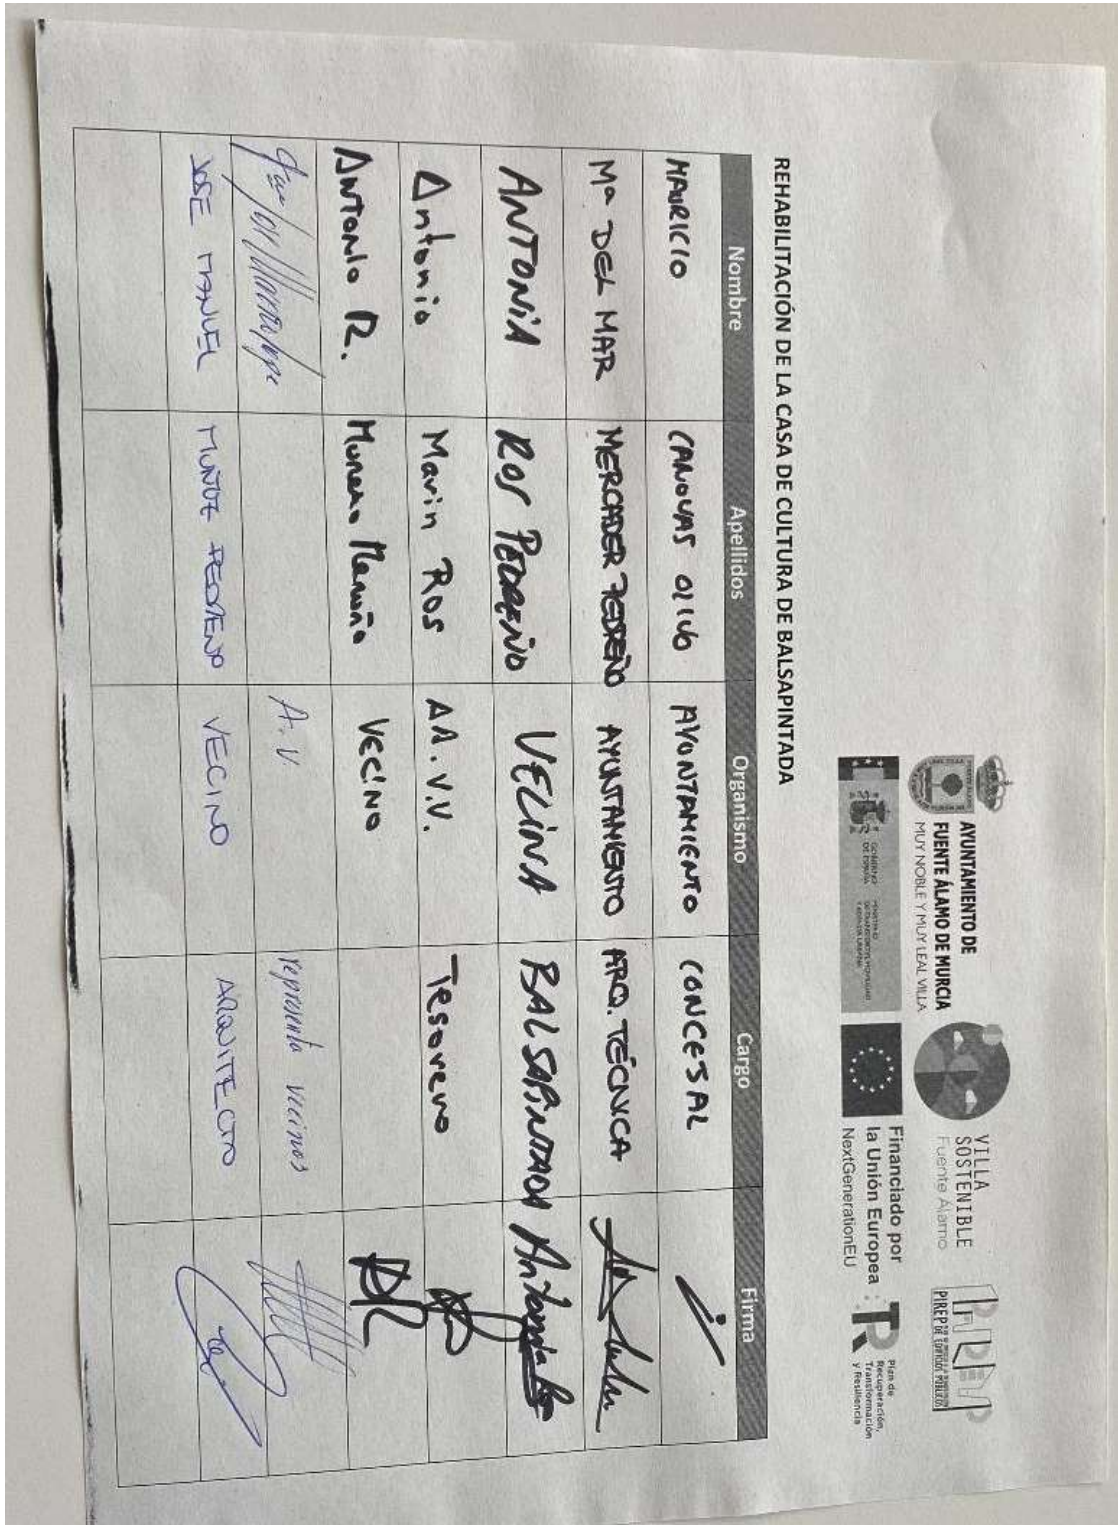 AYUNTAMIENTO DE
FUENTE ÁLAMO DE MURCIA
MUY NOBLE Y MUY LEAL VILLA
VILLA
SOSTENIBLE
Fuente Álamo
PIREP
PIREP DE EDIFICIOS PÚBLICOS
GOBIERNO
DE ESPAÑA
MINISTERIO
DE TRANSPORTES, MOVILIDAD
Y AGENDA URBANA
Financiado por
la Unión Europea
NextGenerationEU
TR
Plan de
Recuperación,
Transformación
y Resiliencia
REHABILITACIÓN DE LA CASA DE CULTURA DE BALSAPINTADA
Nombre Apellidos Organismo Cargo Firma
MAURICIO CANOVAS OLIVO AYONTAMIENTO CONCESAL
Mª DEL MAR MERCADER PEDREÑO AYUNTAMIENTO ARQ. TÉCNICA
ANTONIA ROS PEDREÑO VECINA BALSAPINTADA Antonia
Antonio Marin Ros AA.V.V. Tesorero
Antonio R. Moreno Vecino
A.V representa vecinos
JOSE MANUEL MUÑOZ PEDREÑO VECINO ARQUITECTO